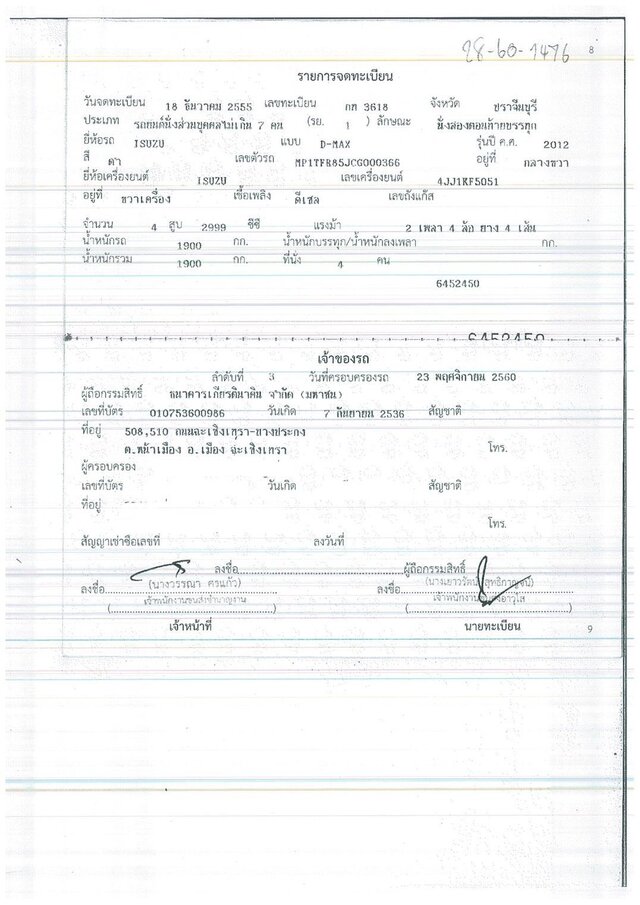 28-60-1476
8
รายการจดทะเบียน
วันจดทะเบียน 18 ธันวาคม 2555 เลขทะเบียน กท 3618 จังหวัด ปราจีนบุรี
ประเภท รถยนต์นั่งส่วนบุคคลไม่เกิน 7 คน (รย. 1 ) ลักษณะ นั่งสองตอนท้ายบรรทุก
ยี่ห้อรถ ISUZU แบบ D-MAX รุ่นปี ค.ศ. 2012
สี ดำ เลขตัวรถ MP1TFR85JCG000366 อยู่ที่ กลางขวา
ยี่ห้อเครื่องยนต์ ISUZU เลขเครื่องยนต์ 4JJ1KF5051
อยู่ที่ ขวาเครื่อง เชื้อเพลิง ดีเซล เลขถังแก๊ส
จำนวน 4 สูบ 2999 ซีซี แรงม้า 2 เพลา 4 ล้อ ยาง 4 เส้น
น้ำหนักรถ 1900 กก. น้ำหนักบรรทุก/น้ำหนักลงเพลา กก.
น้ำหนักรวม 1900 กก. ที่นั่ง 4 คน
6452450
6452450
เจ้าของรถ
ลำดับที่ 3 วันที่ครอบครองรถ 23 พฤศจิกายน 2560
ผู้ถือกรรมสิทธิ์ ธนาคารเกียรตินาคิน จำกัด (มหาชน)
เลขที่บัตร 010753600986 วันเกิด 7 กันยายน 2536 สัญชาติ
ที่อยู่ 508,510 ถนนฉะเชิงเทรา-บางปะกง
ต.หน้าเมือง อ.เมือง ฉะเชิงเทรา โทร.
ผู้ครอบครอง
เลขที่บัตร วันเกิด สัญชาติ
ที่อยู่
โทร.
สัญญาเช่าซื้อเลขที่ ลงวันที่
ลงชื่อ ผู้ถือกรรมสิทธิ์
ลงชื่อ (นางวรรณา ศรแก้ว) ลงชื่อ (นางเยาวรัตน์ สุทธิกาญจน์)
เจ้าพนักงานขนส่งชำนาญงาน เจ้าพนักงานขนส่งอาวุโส
เจ้าหน้าที่ นายทะเบียน
9